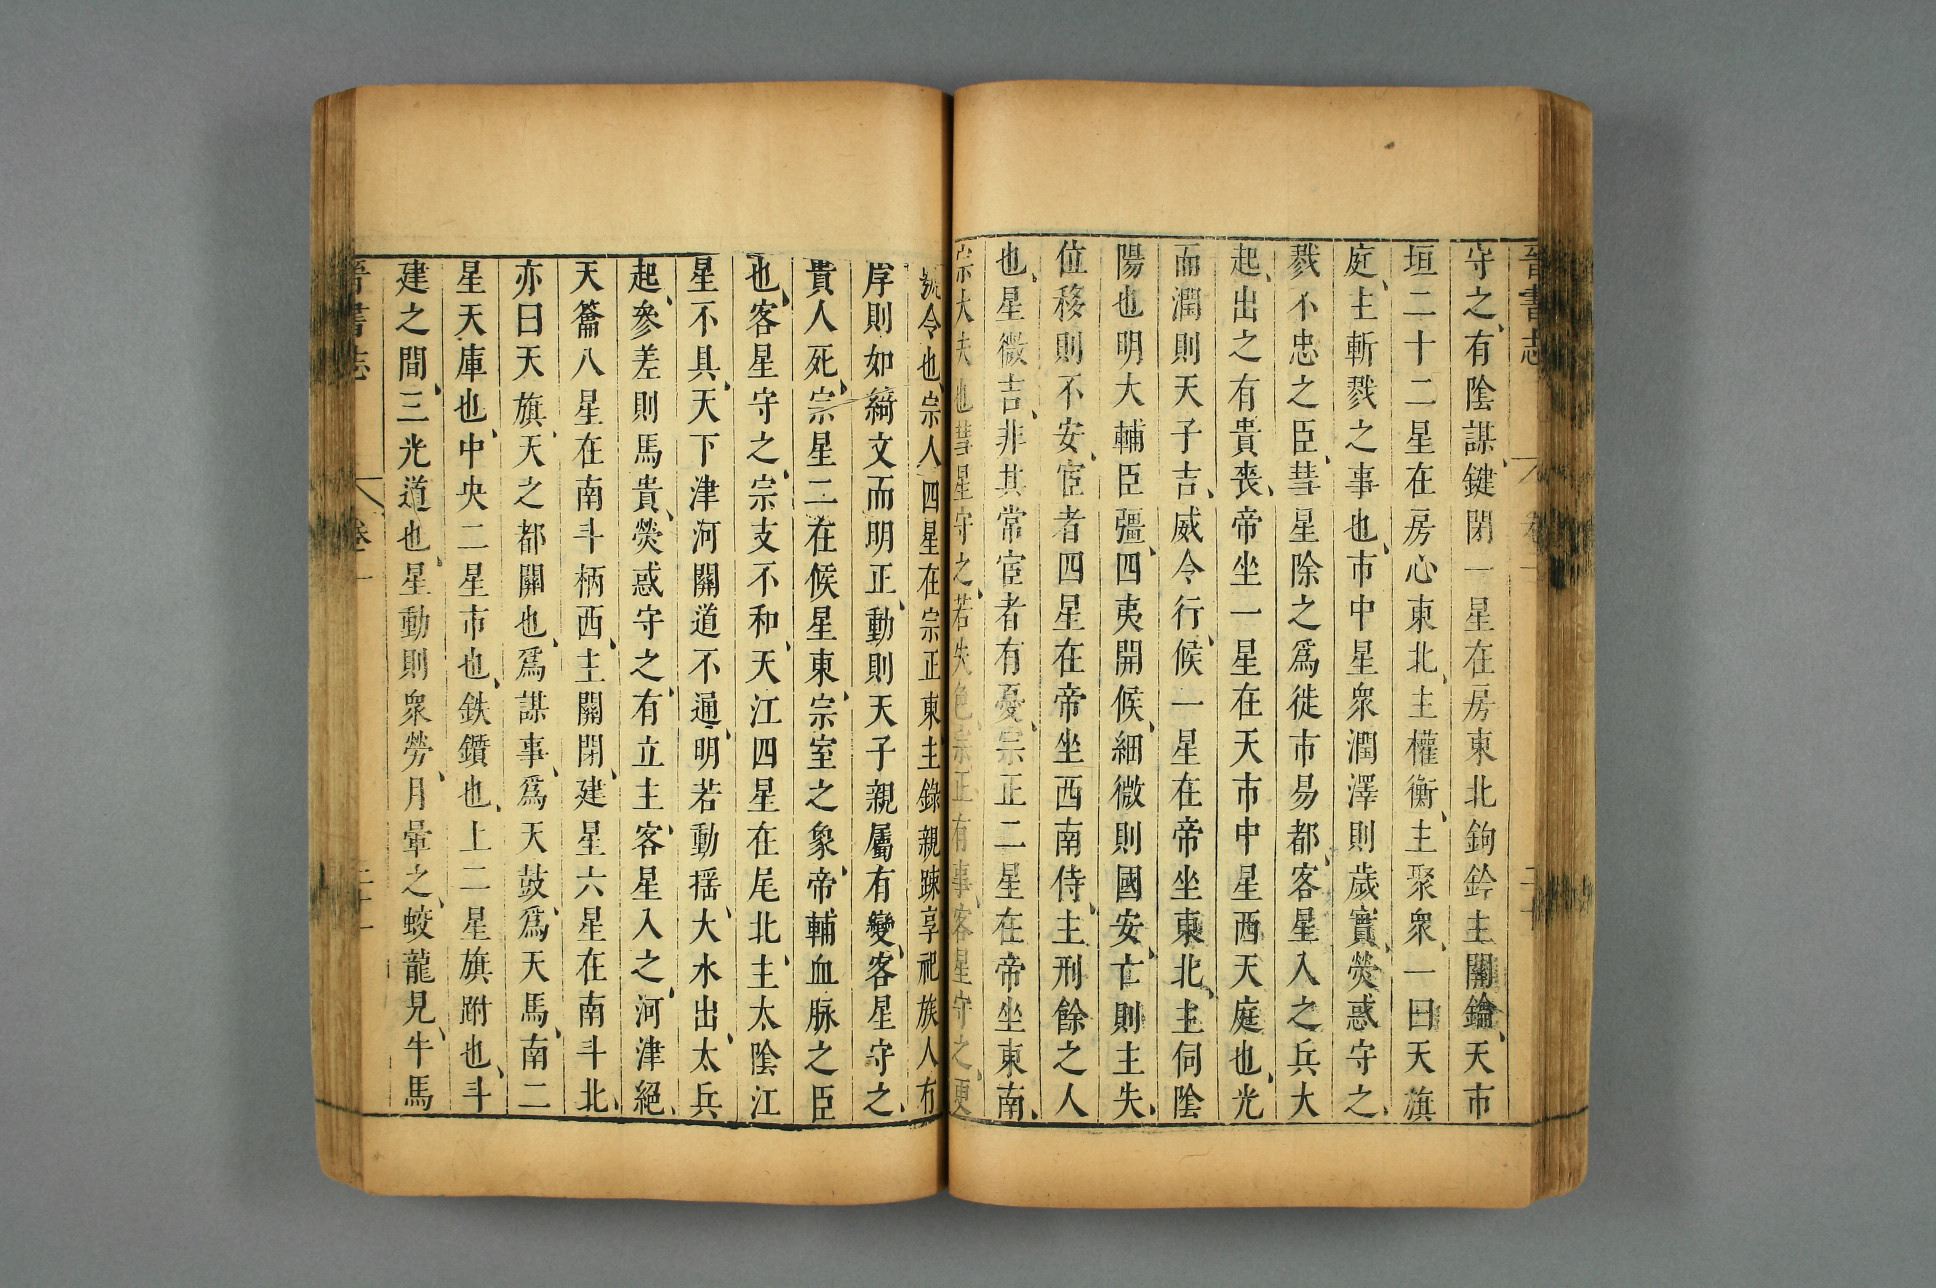 晉書志 卷一 二十
守之、有陰謀、鍵閉一星在房東北鉤鈐主關鑰、天市
垣二十二星在房心東北、主權衡、主聚衆、一曰天旗
庭、主斬戮之事也、市中星衆潤澤則歲實、熒惑守之、
戮不忠之臣、彗星除之爲徙市易都、客星入之兵大
起、出之有貴喪、帝坐一星在天市中星西天庭也、光
而潤則天子吉、威令行、候一星在帝坐東北、主伺陰
陽也明大輔臣彊、四夷開候、細微則國安、亡則主失、
位移則不安、宦者四星在帝坐西南侍、主刑餘之人
也、星微吉、非其常宦者有憂、宗正二星在帝坐東南、
宗大夫也彗星守之、若失色、宗正有事、客星守之、更
號令也、宗人四星在宗正東、主錄親踈享祀族人有
序則如綺文而明正、動則天子親屬有變、客星守之、
貴人死、宗星二在候星東、宗室之象、帝輔血脉之臣
也、客星守之、宗支不和、天江四星在尾北、主太陰江
星不具、天下津河關道不通、明若動揺、大水出、太兵
起、參差則馬貴、熒惑守之、有立主、客星入之、河津絕、
天籥八星在南斗柄西、主關閉、建星六星在南斗北、
亦曰天旗、天之都關也、爲謀事、爲天鼓、爲天馬、南二
星天庫也、中央二星市也、鈇鑕也、上二星旗跗也、斗
建之間、三光道也、星動則衆勞、月暈之、蛟龍見、牛馬
晉書志 卷一 二十一